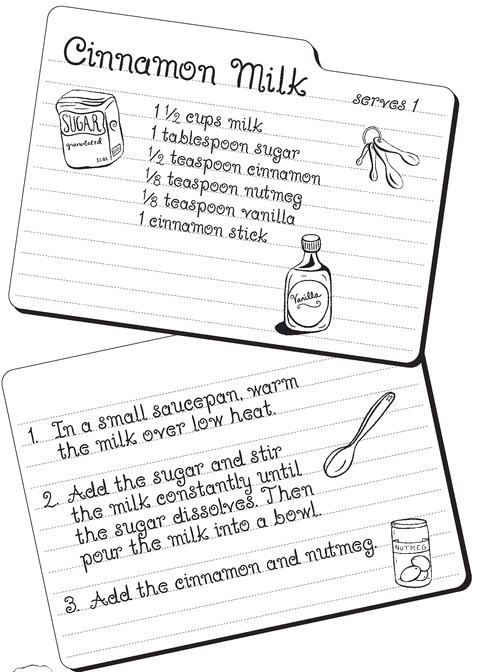 Cinnamon Milk
serves 1
SUGAR
granulated
5 LBS.
1 ½ cups milk
1 tablespoon sugar
½ teaspoon cinnamon
⅛ teaspoon nutmeg
⅛ teaspoon vanilla
1 cinnamon stick
Vanilla
1. In a small saucepan, warm
the milk over low heat.
2. Add the sugar and stir
the milk constantly until
the sugar dissolves. Then
pour the milk into a bowl.
3. Add the cinnamon and nutmeg.
NUTMEG